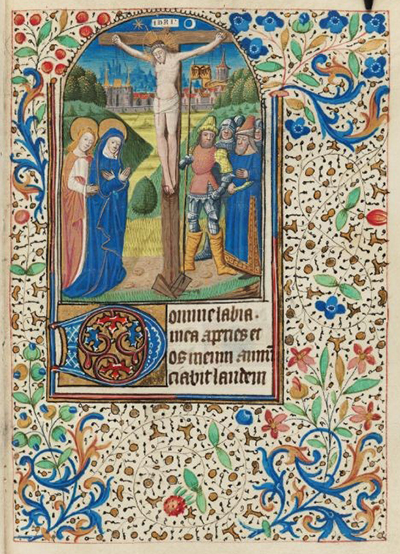 INRI
Domine labia.
mea aperies et
os meum annū
ciabit laudem